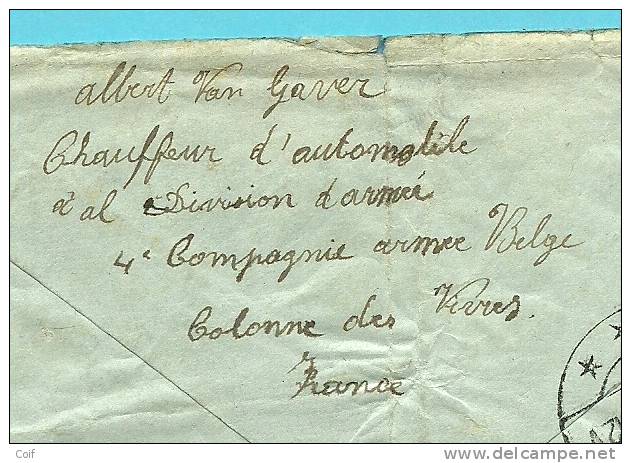 Albert Van Gaver
Chauffeur d'automobile
à al Division d'armée
4e Compagnie armee Belge
Colonne des Vivres.
France
Coif
©delcampe.net